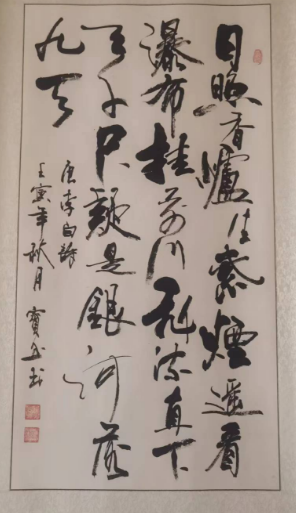 日照香爐生紫煙遥看
瀑布挂前川飛流直下
三千尺疑是銀河落
九天
唐李白詩
壬寅年秋月 寶 书